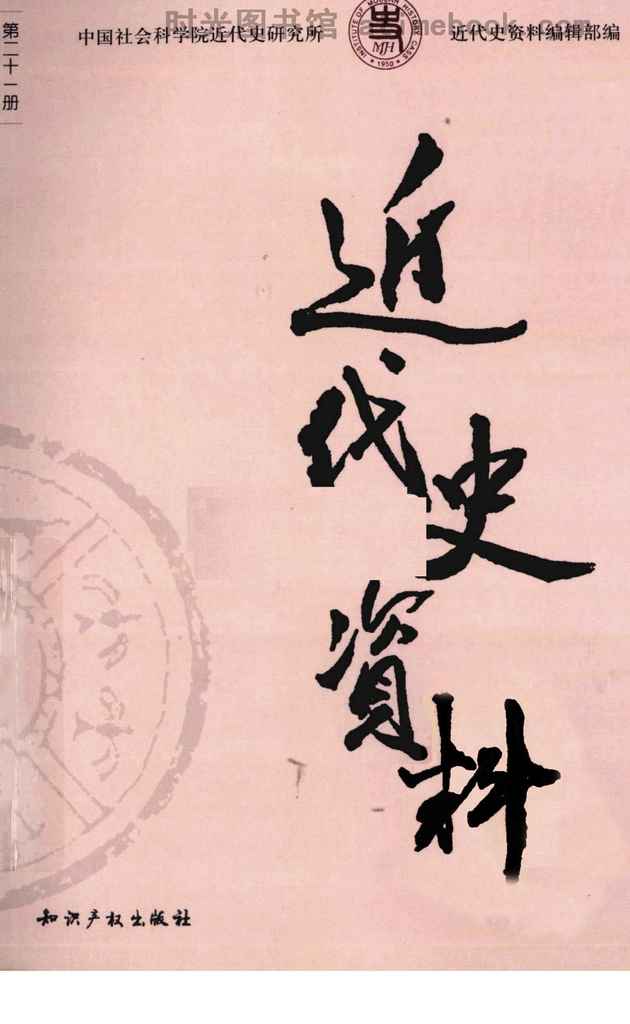 时光图书馆
第二十一册
中国社会科学院近代史研究所
INSTITUTE OF MODERN HISTORY CASS
MJH
1950
近代史资料编辑部编
近代史資料
知识产权出版社